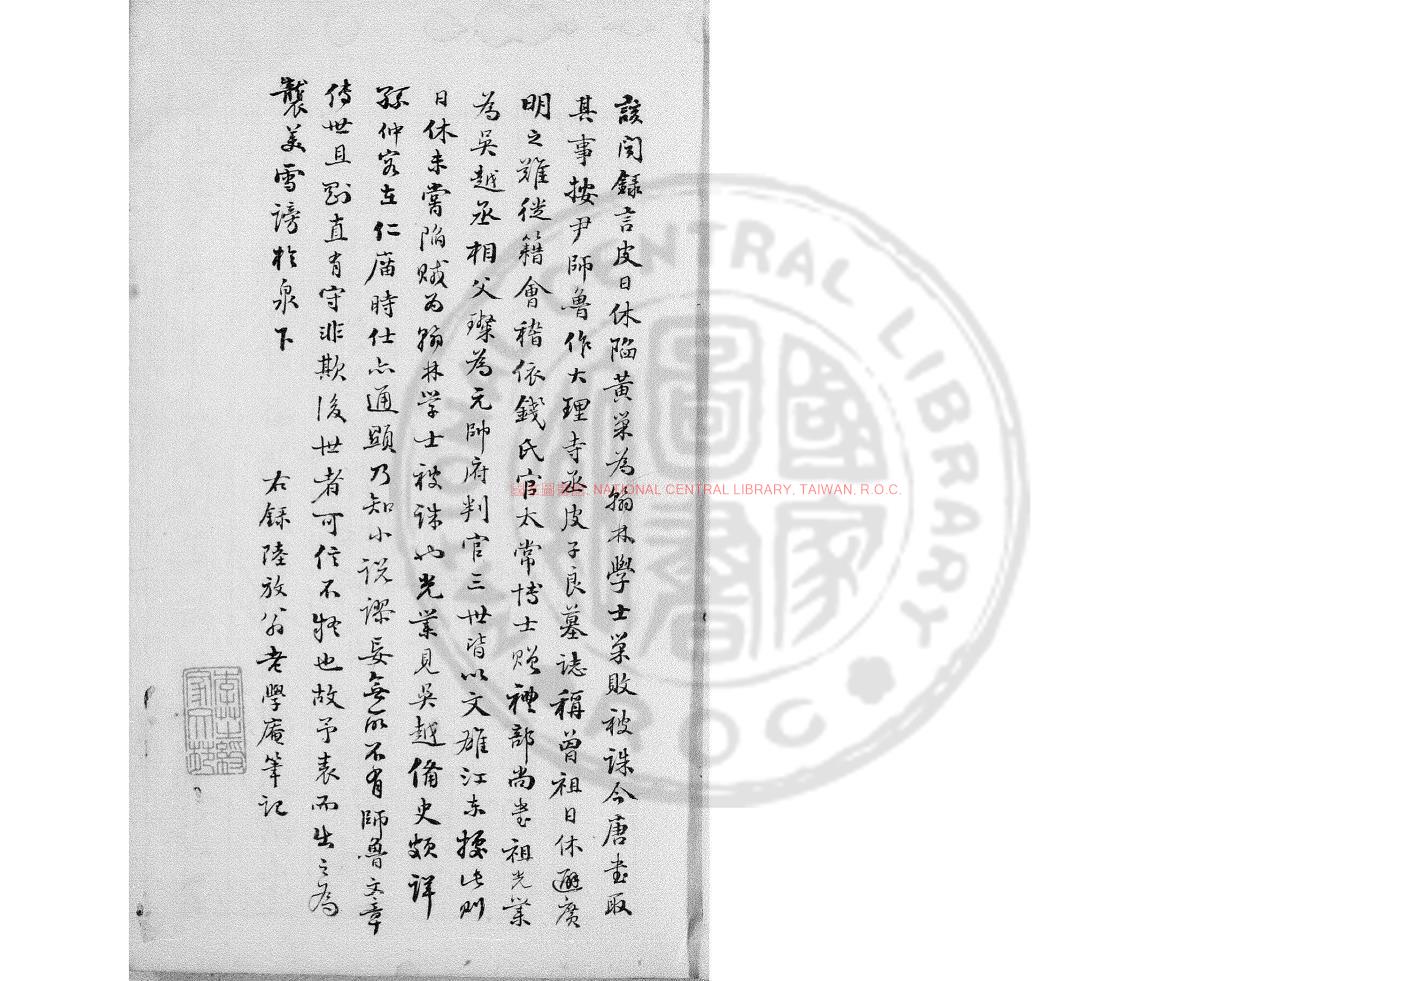 該聞録言皮日休陷黃巢為翰林學士巢敗被誅今唐書取
其事按尹師魯作大理寺丞皮子良墓誌稱曾祖日休避廣
明之難徙籍會稽依錢氏官太常博士贈禮部尚書祖光業
為吳越丞相父璨為元帥府判官三世皆以文雄江東據此則
日休未嘗陷賊為翰林学士被誅也光業見吳越備史頗詳
孫仲容在仁庿時仕亦通顯乃知小説謬妄無所不有師魯文章
傳世且剛直有守非欺後世者可信不疑也故予表而出之為
襲美雪謗於泉下
右録陸放翁老學庵筆記
國家圖書館, NATIONAL CENTRAL LIBRARY, TAIWAN, R.O.C.
NATIONAL CENTRAL LIBRARY
R.O.C
國家圖書